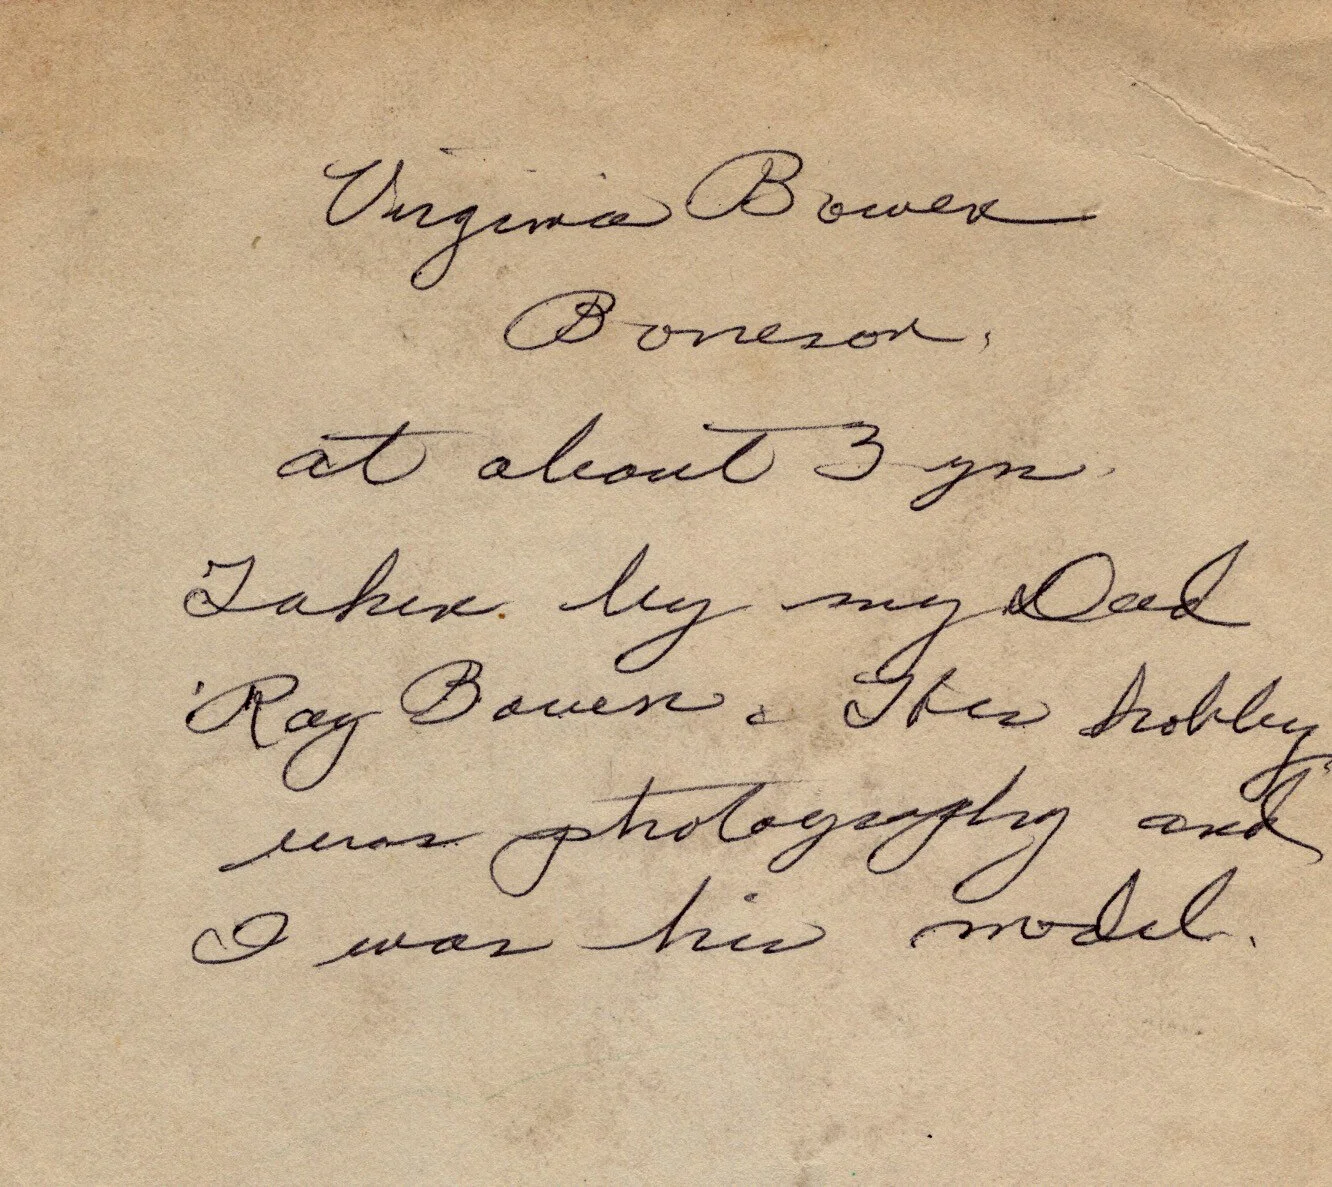 Virginia Bowen
Boneson.
at about 3 yr.
Taken by my Dad
Ray Bowen. His hobby
was photography and
I was his model.